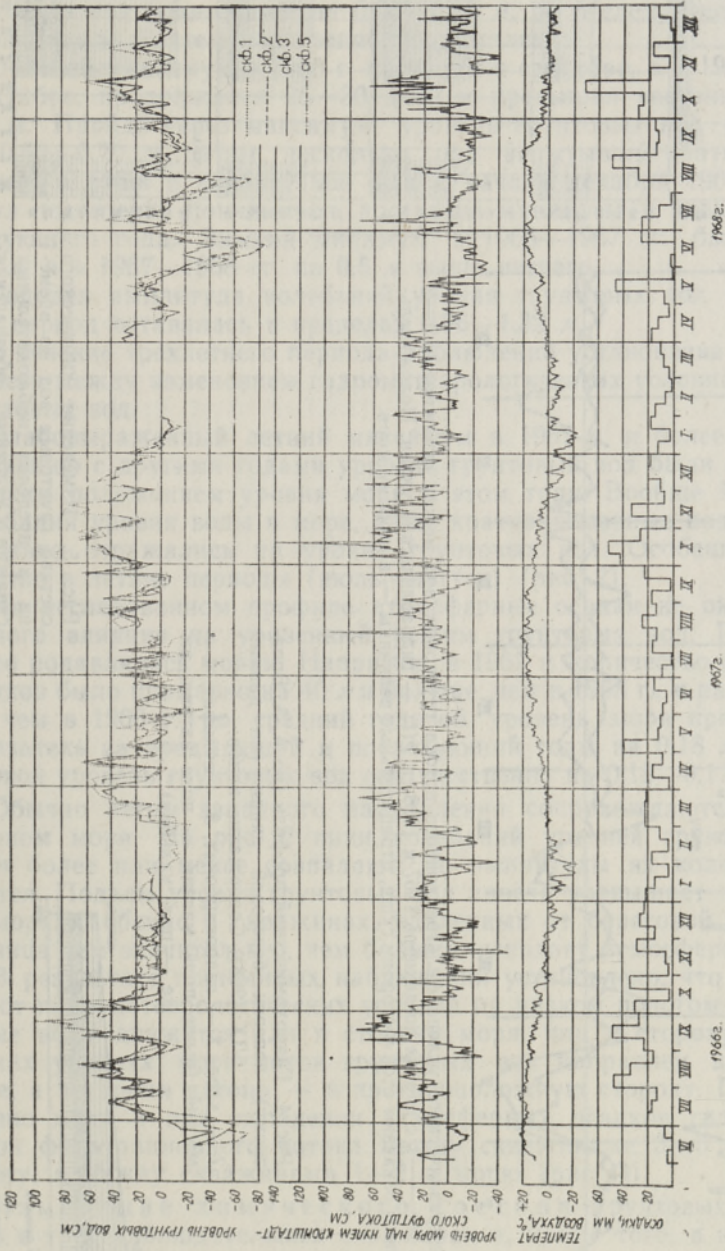 120
100
80
60
40
20
0
-20
-40
-60
-80
УРОВЕНЬ ГРУНТОВЫХ ВОД, СМ
скв.1
скв.2
скв.3
скв.5
80
60
40
20
0
-20
УРОВЕНЬ МОРЯ НАД НУЛЕМ КРОНШТАДТ-
СКОГО ФУТШТОКА, СМ
20
0
-20
ТЕМПЕРАТ.
ВОЗДУХА, °C
60
40
20
ОСАДКИ, ММ
VI VII VIII IX X XI XII I II III IV V VI VII VIII IX X XI XII I II III IV V VI VII VIII IX X XI XII
1966г. 1967г. 1968г.